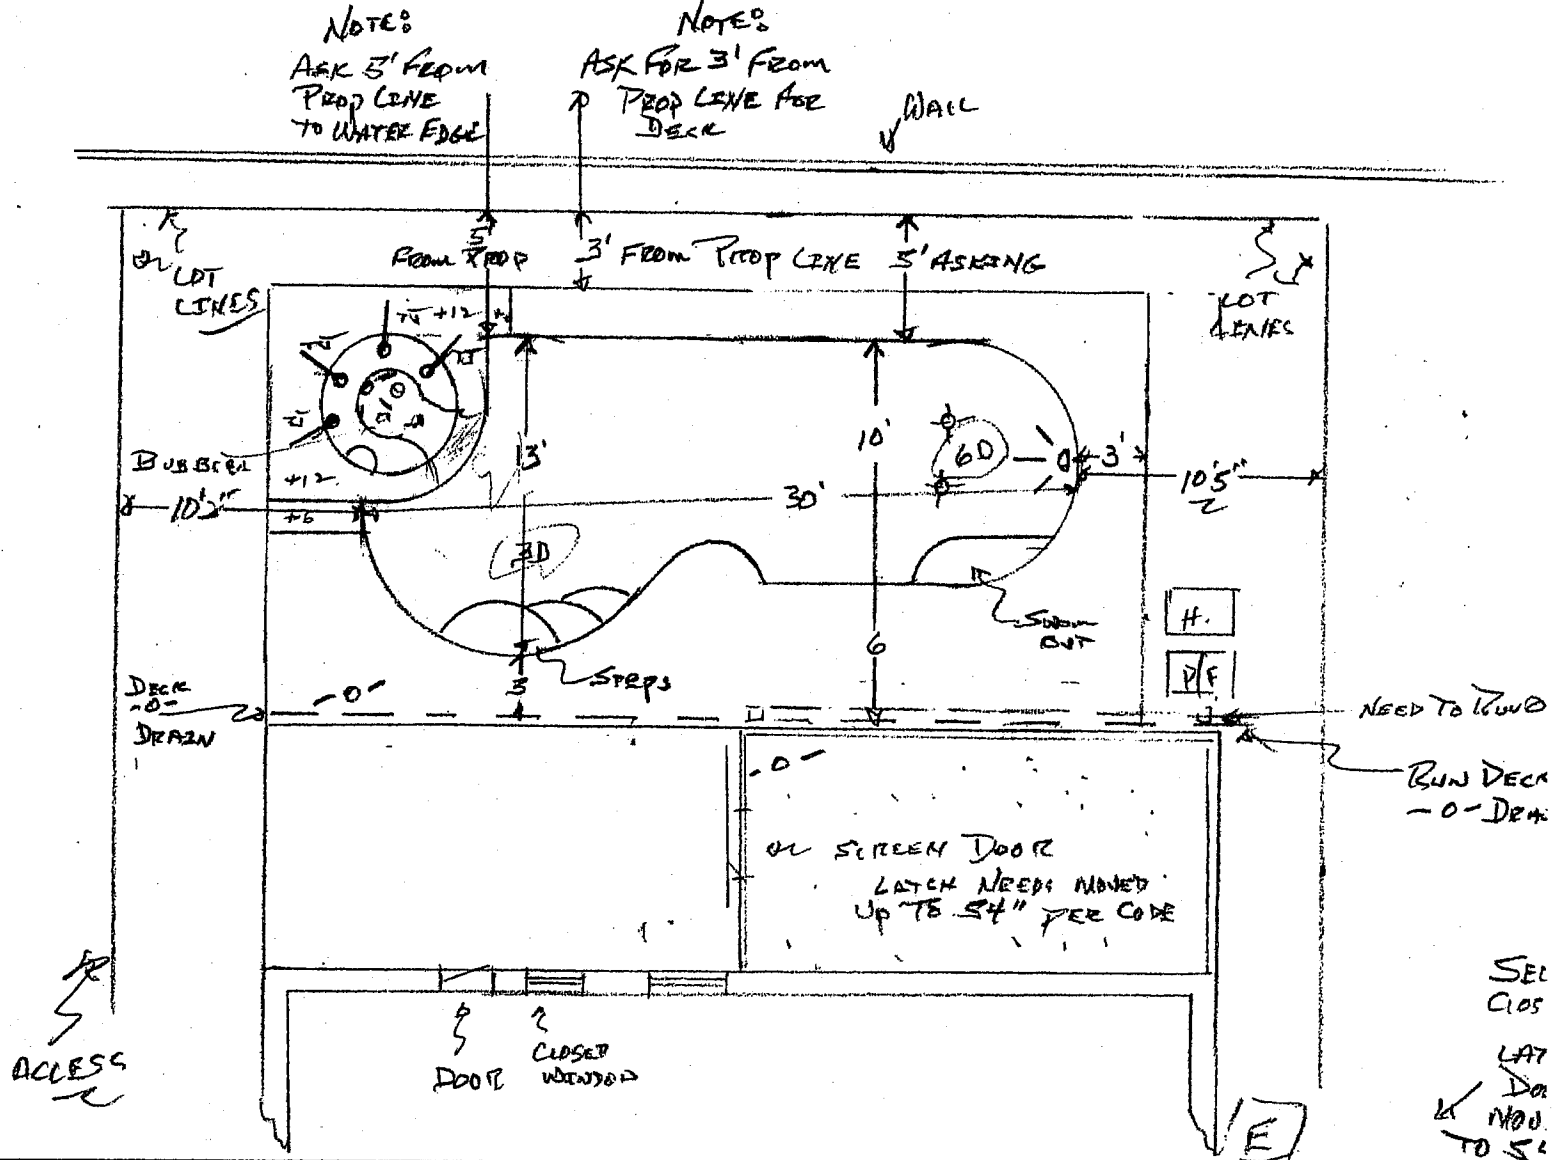 NOTE:
ASK 5' FROM
PROP LINE
TO WATER EDGE
NOTE:
ASK FOR 3' FROM
PROP LINE FOR
DECK
WALL
5'
FROM PROP
3' FROM PROP LINE
5' ASKING
LOT
LINES
LOT
LINES
+12
BUBBLER
+12
+6
10'2"
13'
30'
10'
6D
3'
10'5"
3D
SWIM
OUT
6
H.
P/F
STEPS
3
DECK
-0-
DRAIN
-0-
NEED TO
RUN DECK
-0-
-0-
SCREEN DOOR
LATCH NEEDS MOVED
UP TO 54" PER CODE
ACCESS
DOOR
CLOSED
WINDOW
E
TO